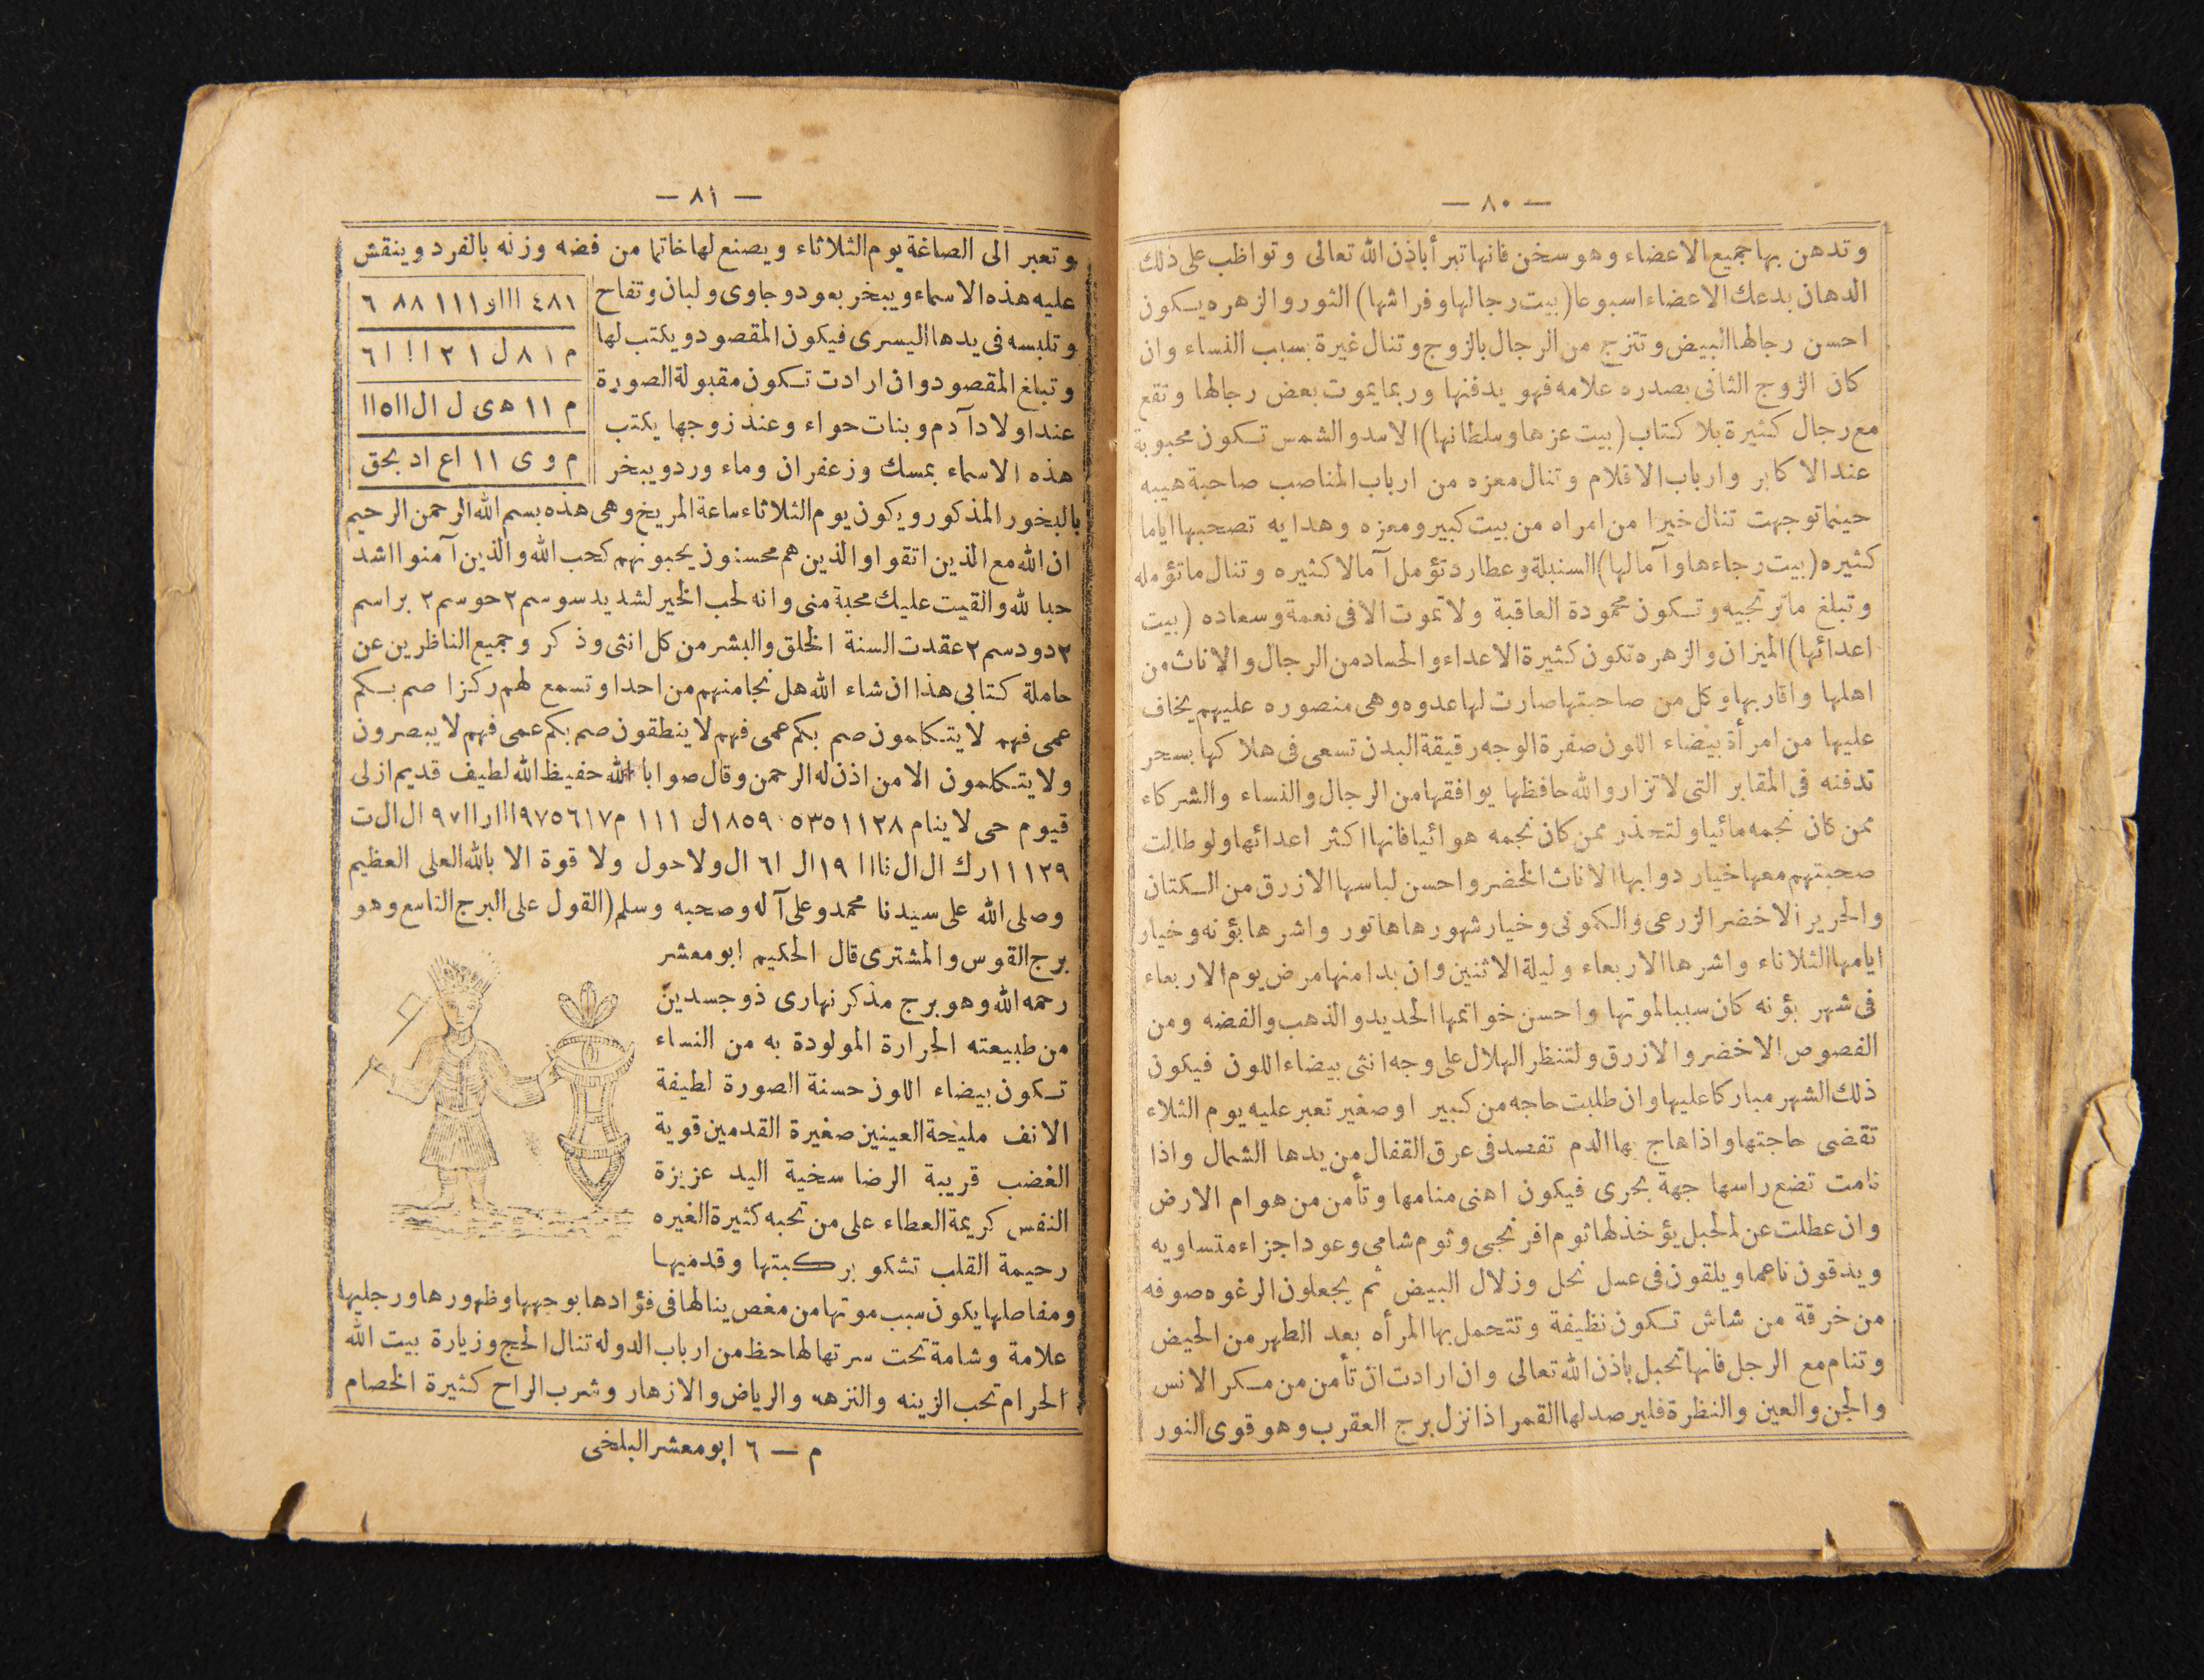 — ٨٠ —
وتدهن بها جميع الاعضاء وهو سخن فانها تبرأ باذن الله تعالى وتواظب على ذلك
الدهان بدعك الاعضاء اسبوعا (بيت رجالها وفراشها) الثور والزهره يكون
احسن رجالها البيض وتتزج من الرجال بالزوج وتنال غيرة بسبب النساء وان
كان الزوج الثانى بصدره علامه فهو يدفنها وربما يموت بعض رجالها وتقع
مع رجال كثيرة بلا كتاب (بيت عزها وسلطانها) الاسد والشمس تكون محبوبة
عند الاكابر وارباب الاقلام وتنال معزه من ارباب المناصب صاحبة هيبه
حيثما توجهت تنال خيرا من امراه من بيت كبير ومعزه وهدايه تصحبها اياما
كثيره (بيت رجاءها وآمالها) السنبلة وعطارد تؤمل آمالا كثيره وتنال ما تؤمله
وتبلغ ما ترتجيه وتكون محمودة العاقبة ولا تموت الا فى نعمة وسعاده (بيت
اعدائها) الميزان والزهره تكون كثيرة الاعداء والحساد من الرجال والاناث من
اهلها واقاربها وكل من صاحبتها صارت لها عدوه وهى منصوره عليهم يخاف
عليها من امرأة بيضاء اللون صفرة الوجه رقيقة البدن تسعى فى هلاكها بسحر
تدفنه فى المقابر التى لا تزار والله حافظها يوافقها من الرجال والنساء والشركاء
ممن كان نجمه مائيا ولتحذر ممن كان نجمه هوائيا فانها اكثر اعدائها ولو طالت
صحبتهم معها خيار دوابها الاناث الخضر واحسن لباسها الازرق من الكتان
والحرير الاخضر الزرعى والكمونى وخيار شهورها هاتور واشرها بؤنه وخيار
ايامها الثلاثاء واشرها الاربعاء وليلة الاثنين وان بدا منها مرض يوم الاربعاء
فى شهر بؤنه كان سببا لموتها واحسن خواتمها الحديد والذهب والفضه ومن
الفصوص الاخضر والازرق ولتنظر الهلال على وجه انثى بيضاء اللون فيكون
ذلك الشهر مباركا عليها وان طلبت حاجه من كبير او صغير تعبر عليه يوم الثلاء
تقضى حاجتها واذا هاج بها الدم تفصد فى عرق القفال من يدها الشمال واذا
نامت تضع راسها جهة بحرى فيكون اهنى منامها وتأمن من هوام الارض
وان عطلت عن لحبل يؤخذ لها ثوم افرنجى وثوم شامى وعود اجزاء متساويه
ويدقون ناعما ويلقون فى عسل نحل وزلال البيض ثم يجعلون الرغوه صوفه
من خرقة من شاش تكون نظيفة وتتحمل بها المرأه بعد الطهر من الحيض
وتنام مع الرجل فانها تحبل باذن الله تعالى وان ارادت ان تأمن من مكر الانس
والجن والعين والنظرة فلير صد لها القمر اذا نزل برج العقرب وهو قوى النور
— ٨١ —
وتعبر الى الصاغة يوم الثلاثاء ويصنع لها خاتما من فضه وزنه بالفرد وينقش
عليه هذه الاسماء ويبخر بعود وجاوى ولبان وتفاح
وتلبسه فى يدها اليسرى فيكون المقصود ويكتب لها
وتبلغ المقصود وان ارادت تكون مقبولة الصورة
عند اولاد آدم وبنات حواء وعند زوجها يكتب
هذه الاسماء بمسك وزعفران وماء ورد ويبخر
٤٨١ ااار ١١١ ٨٨ ٦
م ١ ٨ ل ١ ٢ ا ! ١ ٦
م ١١ هى ل ال اا٥اا
م و ى ١١ اع اد بحق
بالبخور المذكور ويكون يوم الثلاثاء ساعة المريخ وهى هذه بسم الله الرحمن الرحيم
ان الله مع الذين اتقوا والذين هم محسنون يحبونهم كحب الله والذين آمنوا اشد
حبا لله والقيت عليك محبة منى وانه لحب الخير لشديد سوسم ٢ حوسم ٢ براسم
٢ دودسم ٢ عقدت السنة الخلق والبشر من كل انثى وذكر وجميع الناظرين عن
حاملة كتابى هذا ان شاء الله هل نجا منهم من احد او تسمع لهم ركزا صم بكم
عمى فهم لا يتكلمون صم بكم عمى فهم لا ينطقون صم بكم عمى فهم لا يبصرون
ولا يتكلمون الا من اذن له الرحمن وقال صوابا الله حفيظ الله لطيف قديم ازلى
قيوم حى لا ينام ٥٣٥١١٢٨ ١٨٥٩٠ل ١١١ م٩٧٥٦١٧ااار اا٩٧ ال ال ت
١١١٢٩رك ال ال ثااا ١٩ال ٦١ ال ولا حول ولا قوة الا بالله العلى العظيم
وصلى الله على سيدنا محمد وعلى آله وصحبه وسلم (القول على البرج التاسع وهو
برج القوس والمشترى قال الحكيم ابو معشر
رحمه الله وهو برج مذكر نهارى ذو جسدين
من طبيعته الحرارة المولودة به من النساء
تكون بيضاء اللون حسنة الصورة لطيفة
الانف مليحة العينين صغيرة القدمين قوية
الغضب قريبة الرضا سخية اليد عزيزة
النفس كريمة العطاء على من تحبه كثيرة الغيره
رحيمة القلب تشكو بركبتها وقدميها
ومفاصلها يكون سبب موتها من مغص ينالها فى فؤادها بوجهها وظهورها ورجليها
علامة وشامة تحت سرتها لها حظ من ارباب الدوله تنال الحج وزيارة بيت الله
الحرام تحب الزينه والنزهه والرياض والازهار وشرب الراح كثيرة الخصام
م — ٦ ابو معشر البلخى